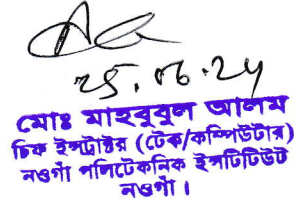 25.06.24
মোঃ মাহবুবুল আলম
চিফ ইন্সট্রাক্টর (টেক/কম্পিউটার)
নওগাঁ পলিটেকনিক ইন্সটিটিউট
নওগাঁ।